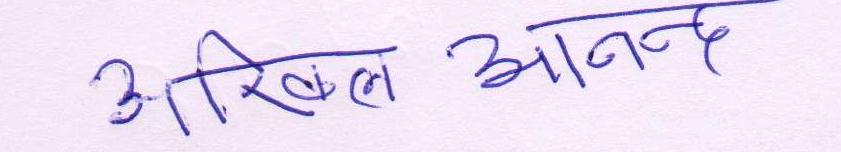 अखिल आनन्द